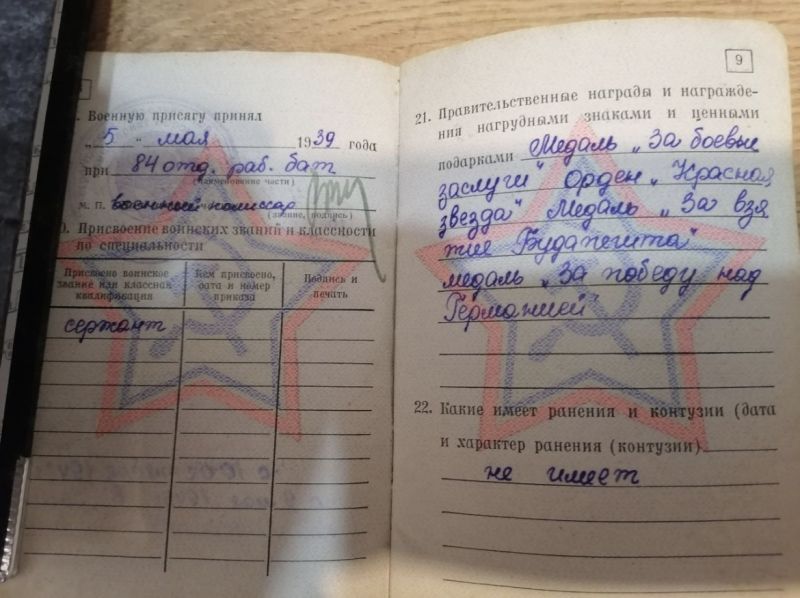 . Военную присягу принял
„ 5 " мая 1939 года
при 84 отд. раб. бат
(наименование части)
М. П. военный комиссар
(звание, подпись)
0. Присвоение воинских званий и классности
по специальности
Присвоено воинское звание или классная квалификация
Кем присвоено, дата и номер приказа
Подпись и печать
сержант
9
21. Правительственные награды и награжде-
ния нагрудными знаками и ценными
подарками Медаль „За боевые
заслуги" орден „Красная
звезда" Медаль „За взя
тие Будапешта"
медаль „За победу над
Германией"
22. Какие имеет ранения и контузии (дата
и характер ранения (контузии)
не имеет